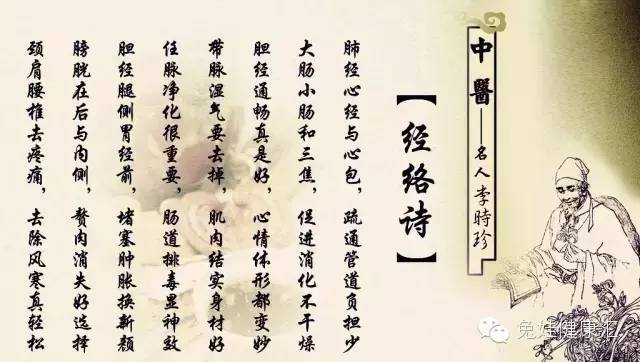 中醫——名人李時珍
【经络诗】
肺经心经与心包，疏通管道负担少
大肠小肠和三焦，促进消化不干燥
胆经通畅真是好，心情体形都变妙
带脉湿气要去掉，肌肉结实身材好
任脉净化很重要，肠道排毒显神效
胆经腿侧胃经前，堵塞肿胀换新颜
膀胱在后与内侧，赘肉消失好选择
颈肩腰椎去疼痛，去除风寒真轻松
兔娃健康汇